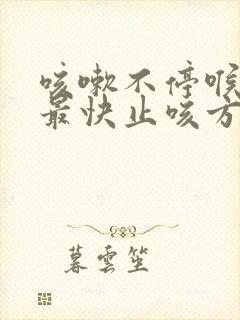 咳嗽不停喉
最快止咳方
暮雲笙